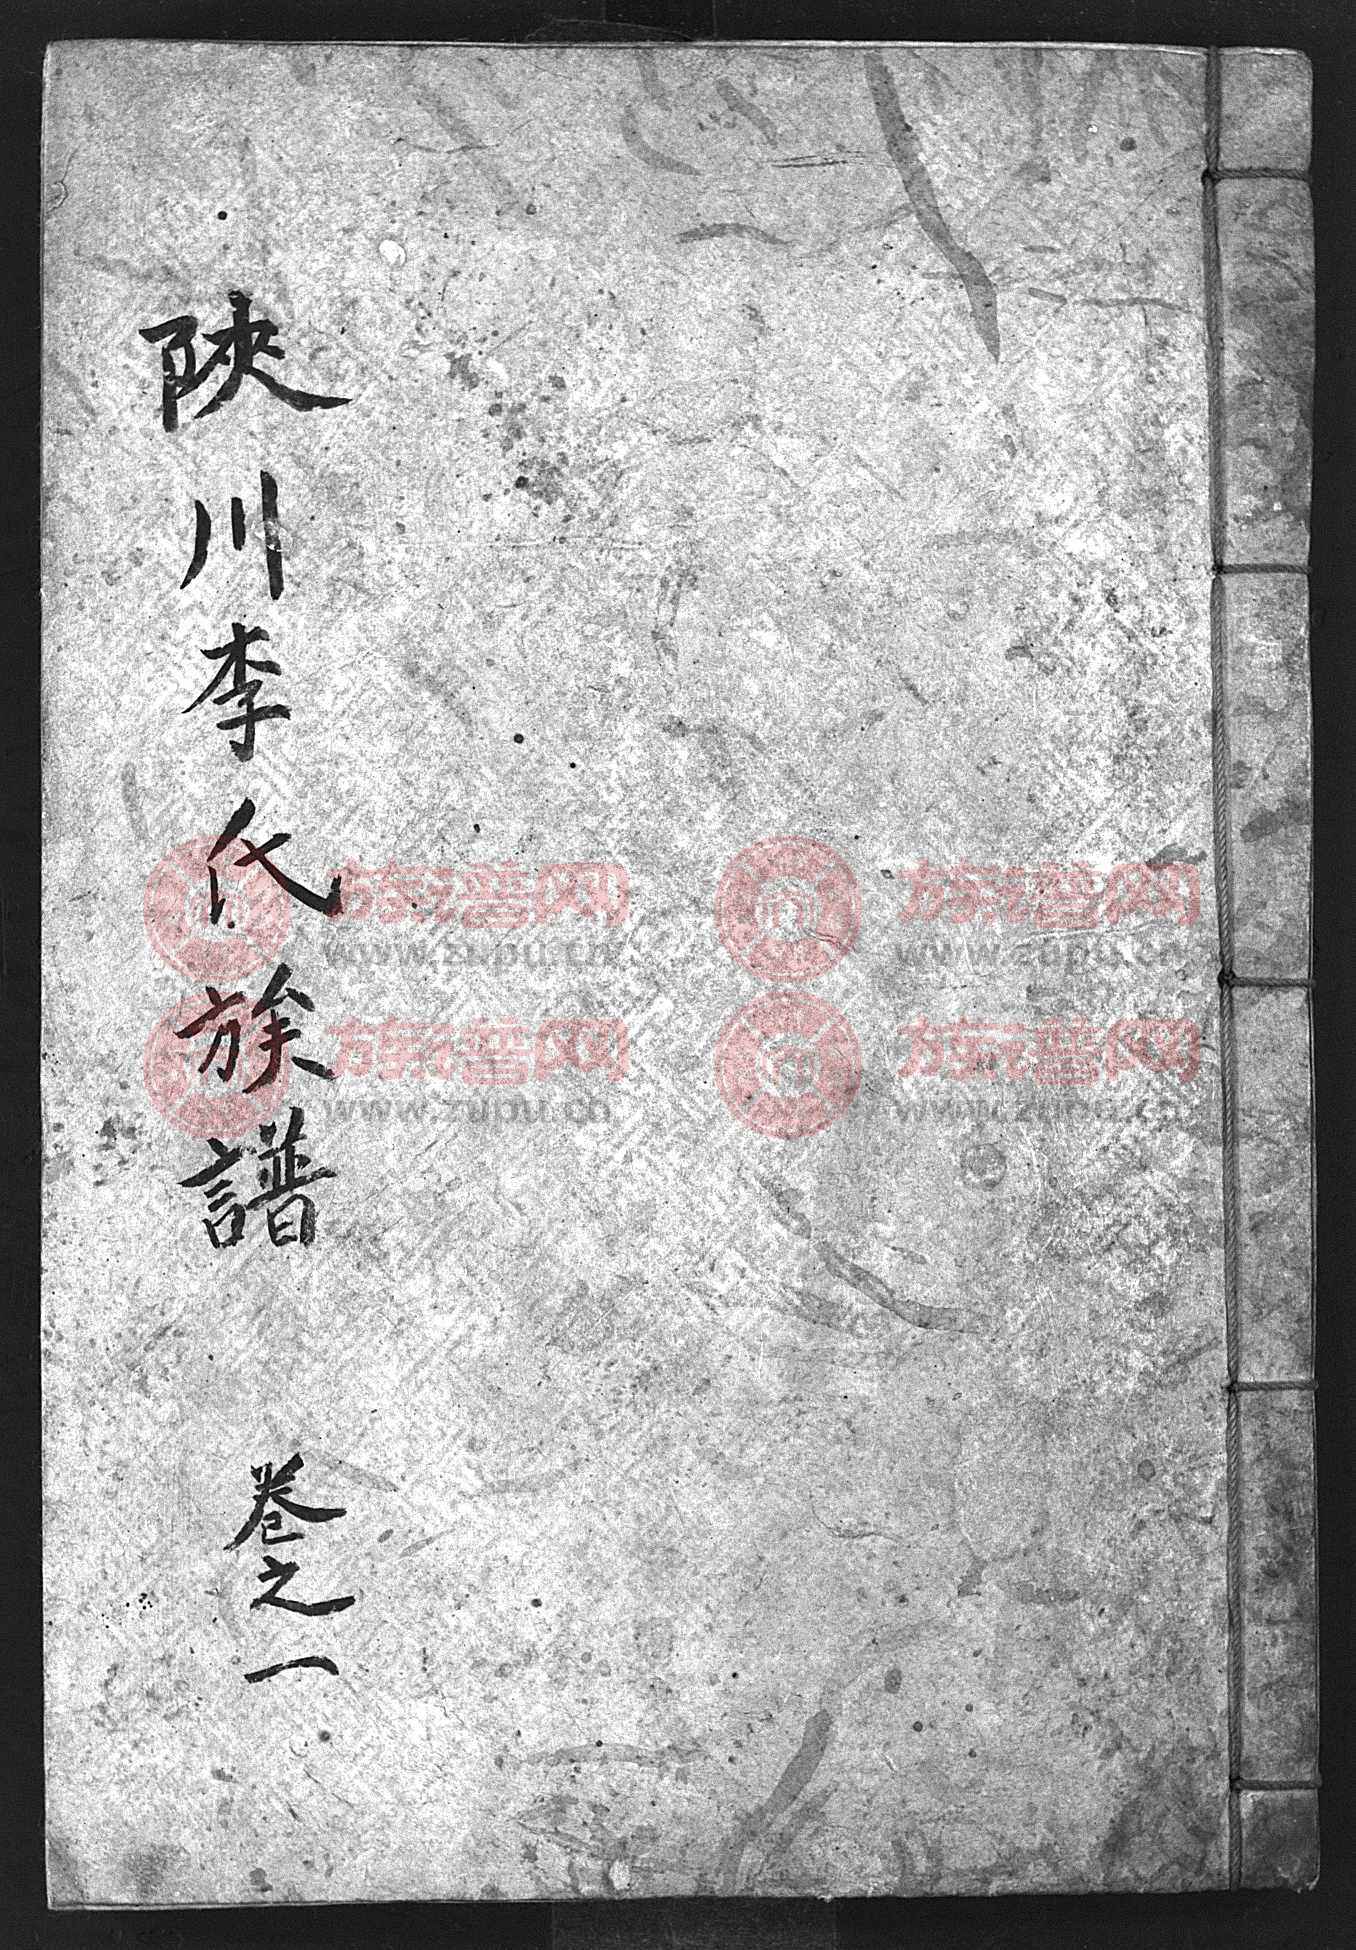 陜川李氏族譜
卷之一
族谱网
www.zupu.cn
族谱网
www.zupu.cn
族谱网
www.zupu.cn
族谱网
www.zupu.cn